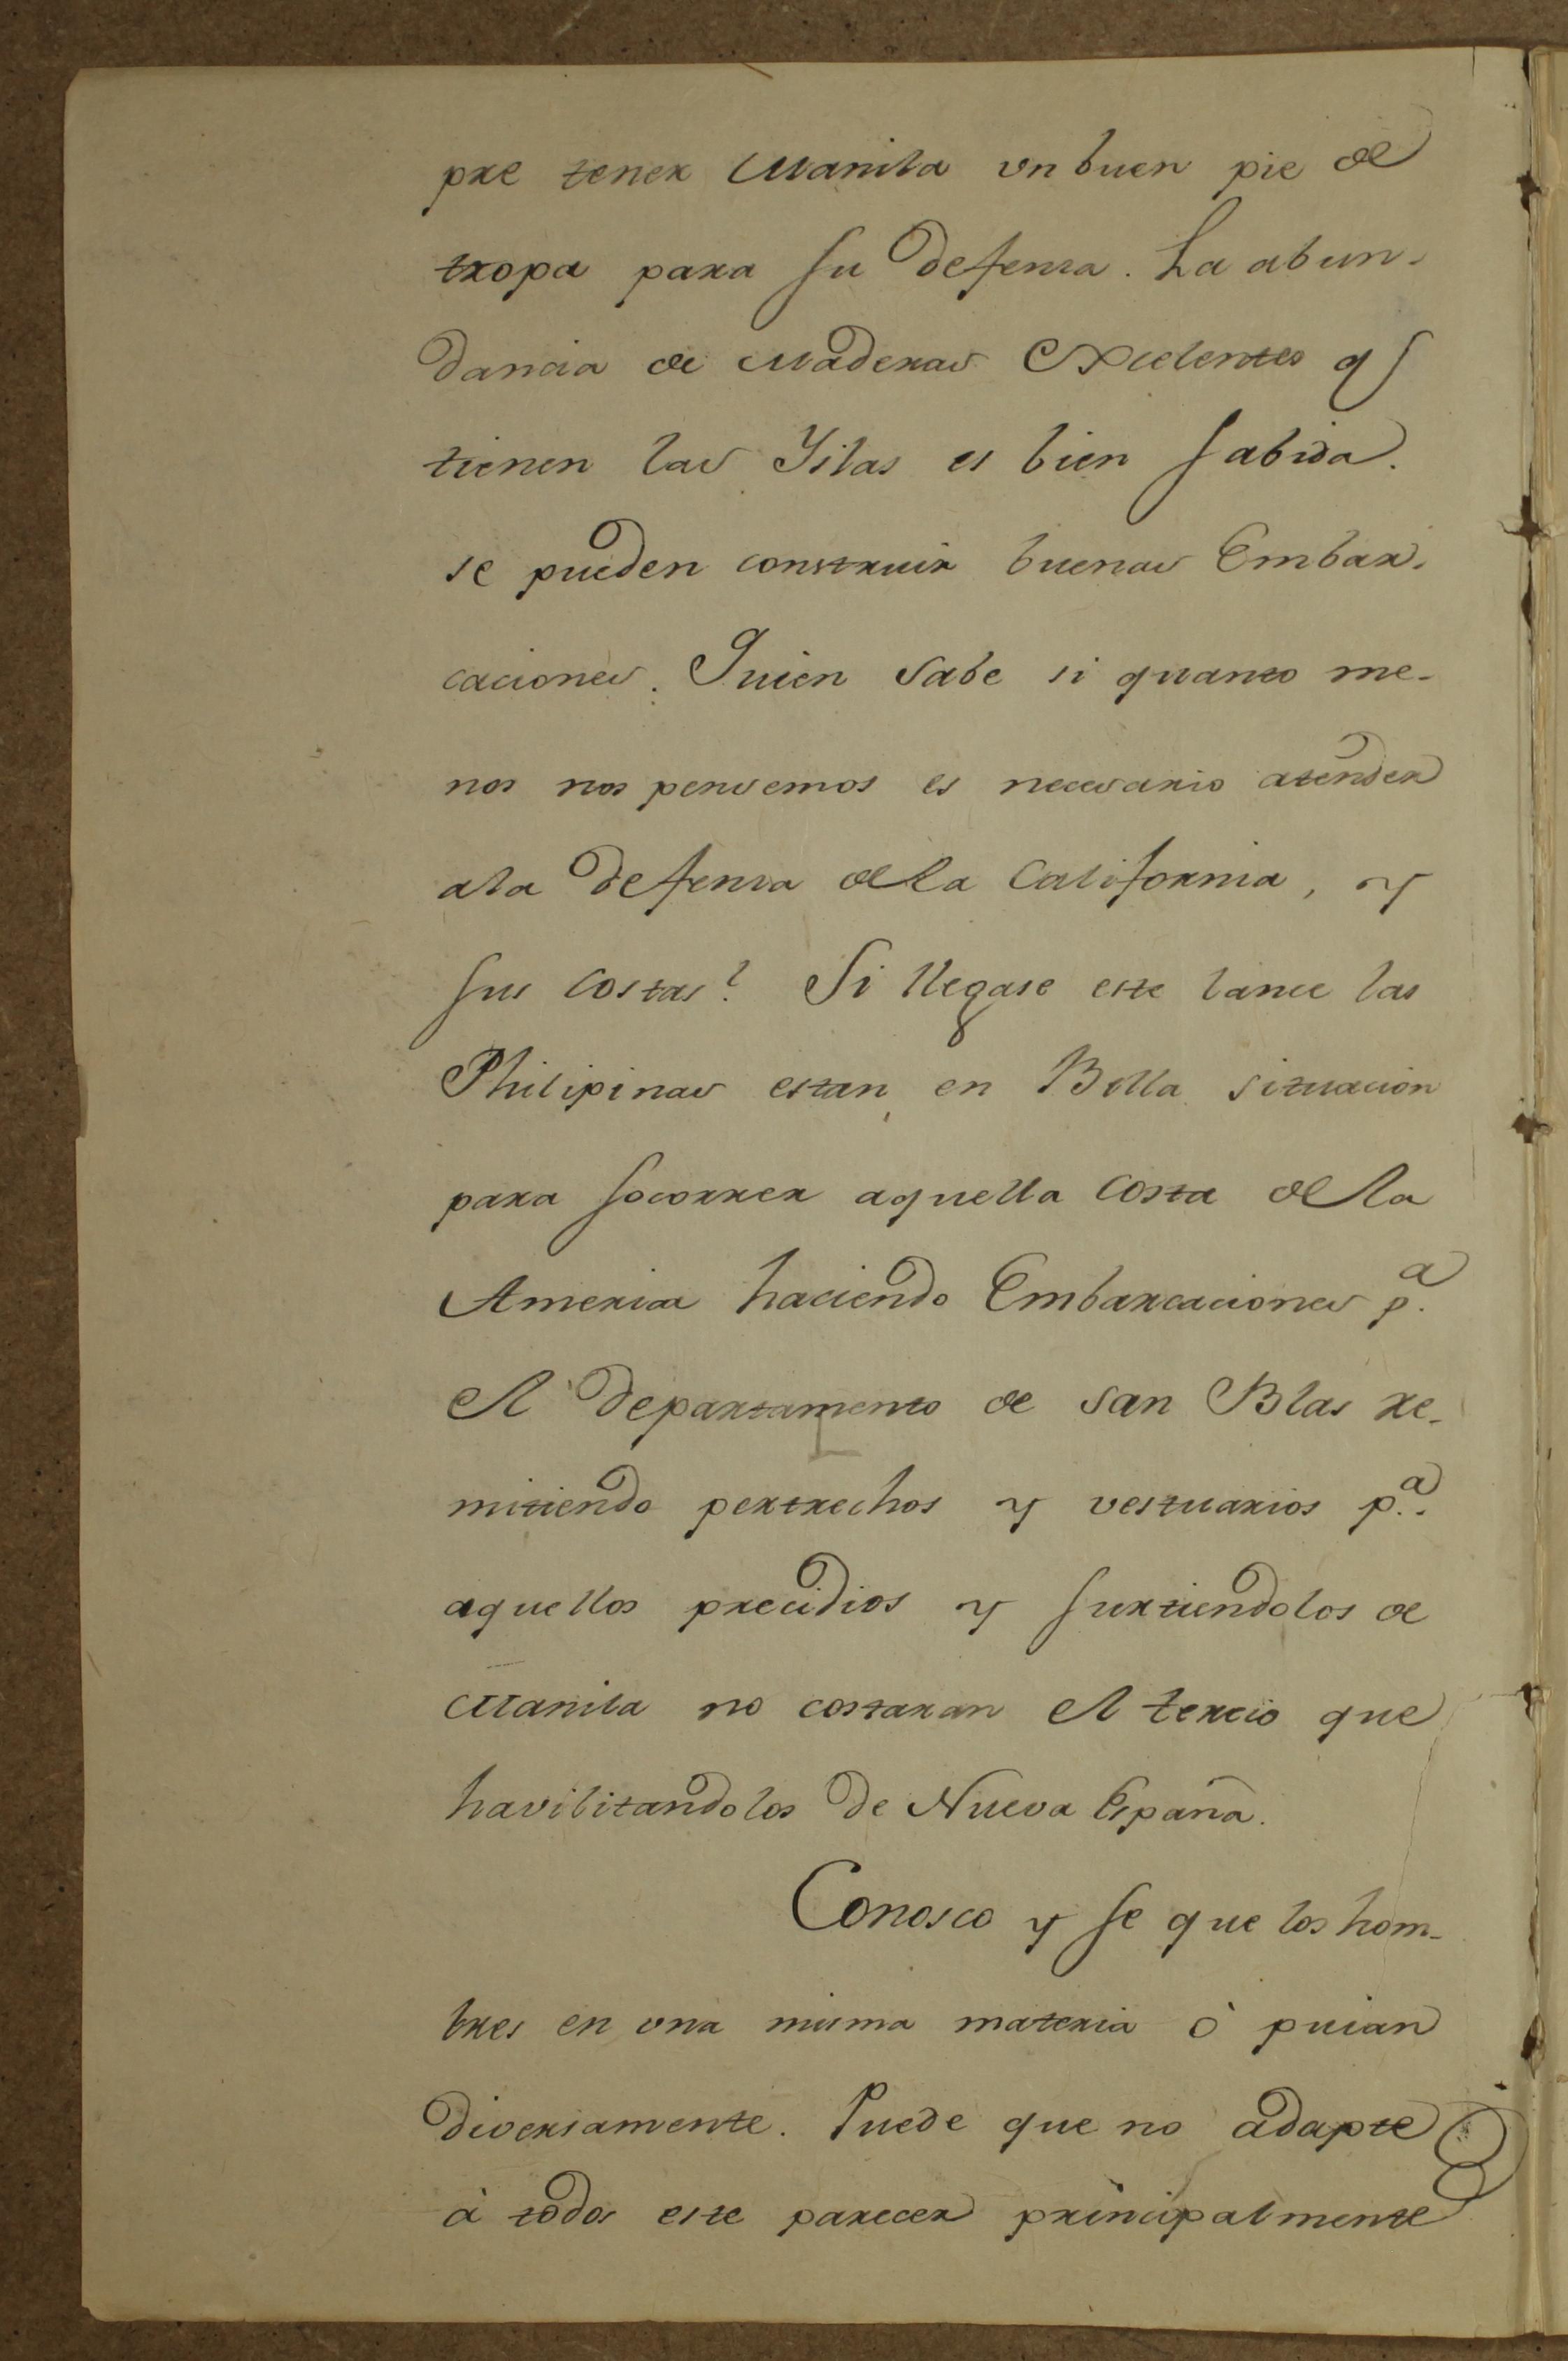 pre tener Manila vn buen pie de
tropa para su defensa. La abun-
dancia de Maderas Excelentes q
tienen las Yslas es bien sabida.
se pueden construir buenas Embar-
caciones. Quien sabe si quanto me-
nos nos pensemos es necesario atender
ala defensa dela California, y
sus costas? Si llegase este lance las
Philipinas estan en Bella situacion
para socorrer aquella costa dela
America haciendo Embarcaciones p.a
el departamento de San Blas re-
mitiendo pertrechos y vestuarios p.a
aquellos precidios y surtiendolos de
Manila no costaran el tercio que
havilitandolos de Nueva España.
Conosco y se que los hom-
bres en vna misma materia ò pinan
diversamente. Puede que no adapte
à todos este parecer principalmente